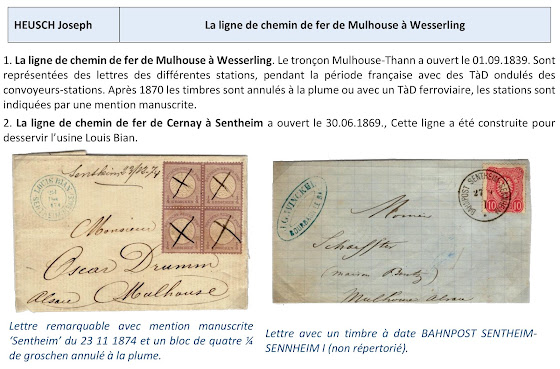 HEUSCH Joseph
La ligne de chemin de fer de Mulhouse à Wesserling
1. La ligne de chemin de fer de Mulhouse à Wesserling. Le tronçon Mulhouse-Thann a ouvert le 01.09.1839. Sont
représentées des lettres des différentes stations, pendant la période française avec des TàD ondulés des
convoyeurs-stations. Après 1870 les timbres sont annulés à la plume ou avec un TàD ferroviaire, les stations sont
indiquées par une mention manuscrite.
2. La ligne de chemin de fer de Cernay à Sentheim a ouvert le 30.06.1869., Cette ligne a été construite pour
desservir l'usine Louis Bian.
Sentheim 23/11.74
Monsieur
Oscar Drumm
Alsace Mulhouse
BAHNPOST SENTHEIM
10 10
Schaeffter
Mulhouse Alsace
Lettre remarquable avec mention manuscrite
'Sentheim' du 23 11 1874 et un bloc de quatre ¼
de groschen annulé à la plume.
Lettre avec un timbre à date BAHNPOST SENTHEIM-
SENNHEIM I (non répertorié).